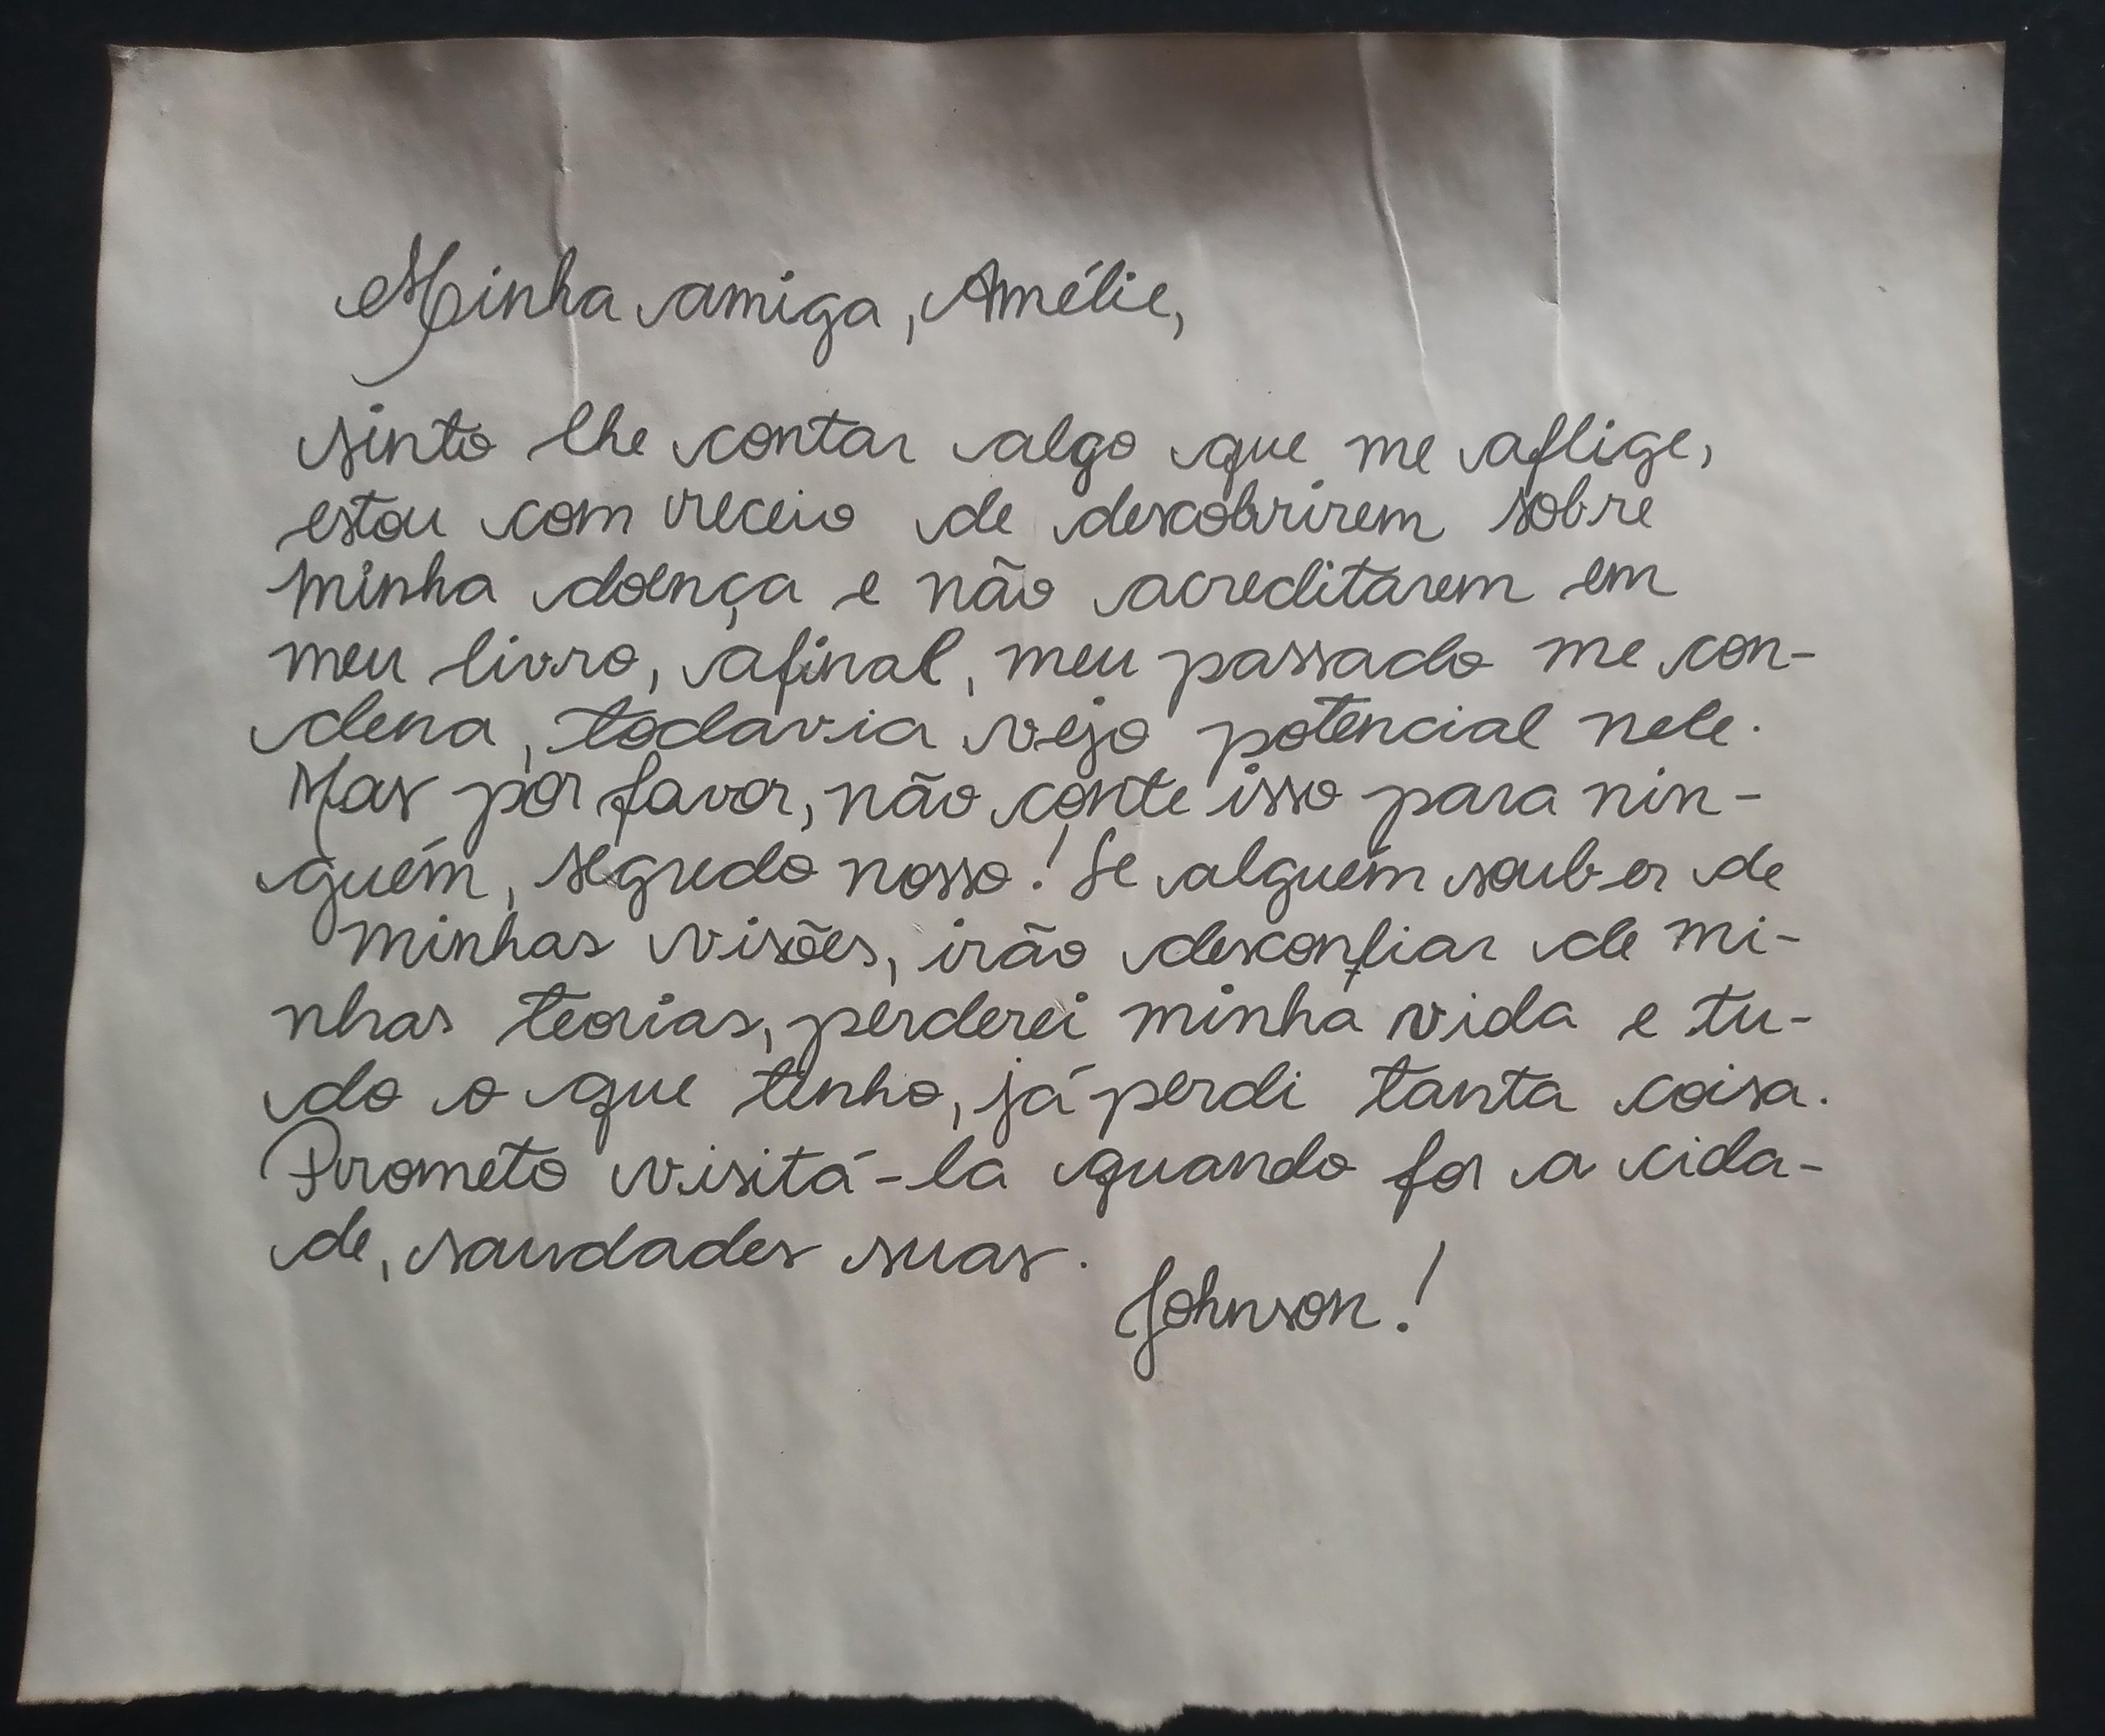 Minha amiga, Amélie,
sinto lhe contar algo que me aflige,
estou com receio de descobrirem sobre
minha doença e não acreditarem em
meu livro, afinal, meu passado me con-
dena, todavia vejo potencial nele.
Mas por favor, não conte isso para nin-
guém, segredo nosso! Se alguém souber de
minhas visões, irão desconfiar de mi-
nhas teorias, perderei minha vida e tu-
do o que tenho, já perdi tanta coisa.
Prometo visitá-la quando for a cida-
de, saudades suas.
Johnson!